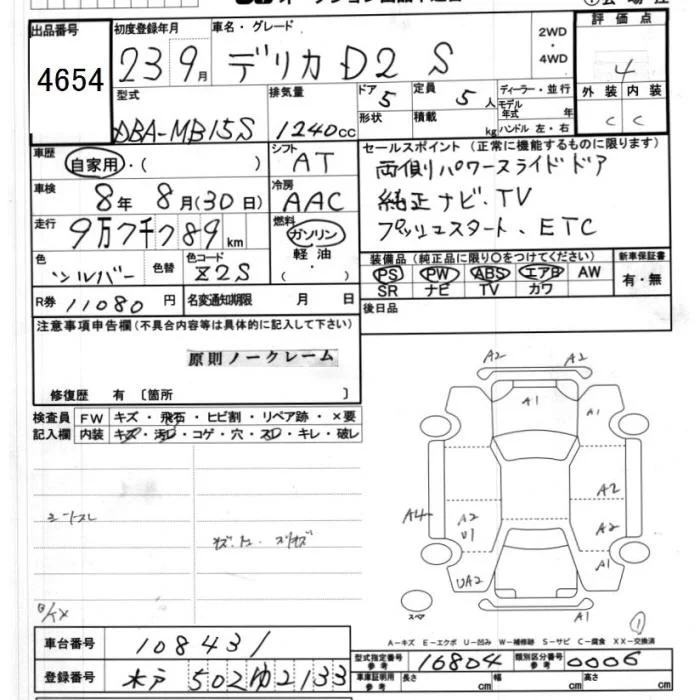 出品番号
4654
初度登録年月
23 9月
車名・グレード
デリカ D2 S
2WD
・
4WD
評価点
4
外装 内装
C C
型式
DBA-MB15S
排気量
1240cc
ドア
5
定員
5人
形状
積載
kg
ディーラー・並行
モデル年式 年
ハンドル 左・右
車歴
自家用・( )
シフト
AT
車検
8年 8月(30日)
冷房
AAC
走行
9万7千789km
燃料
ガソリン
軽油・
( )
色
シルバー
色替
色コード
Z2S
R券 11080円
名変通知期限 月 日
セールスポイント(正常に機能するものに限ります)
両側パワースライドドア
純正ナビ・TV
プッシュスタート、ETC
装備品(純正品に限り○をつけてください)
PS PW ABS エアB AW
SR ナビ TV カワ
新車保証書
有・無
後日品
注意事項申告欄(不具合内容等は具体的に記入して下さい)
原則ノークレーム
修復歴 有 〔箇所 〕
検査員記入欄
FW キズ・飛石・ヒビ割・リペア跡・×要
内装 キズ・汚レ・コゲ・穴・スレ・キレ・破レ
シートスレ
A2 A2
A1 A1
A2
A4 A2
U1
A2
A1
UA2
A1
スペア
①
A-キズ E-エクボ U-凹み W-補修跡 S-サビ C-腐食 XX-交換済
車台番号
108431
登録番号
水戸 502 ゆ 2133
型式指定番号
参考
16804
類別区分番号
参考
0006
車庫証明用
参考
長さ cm 幅 cm 高さ cm